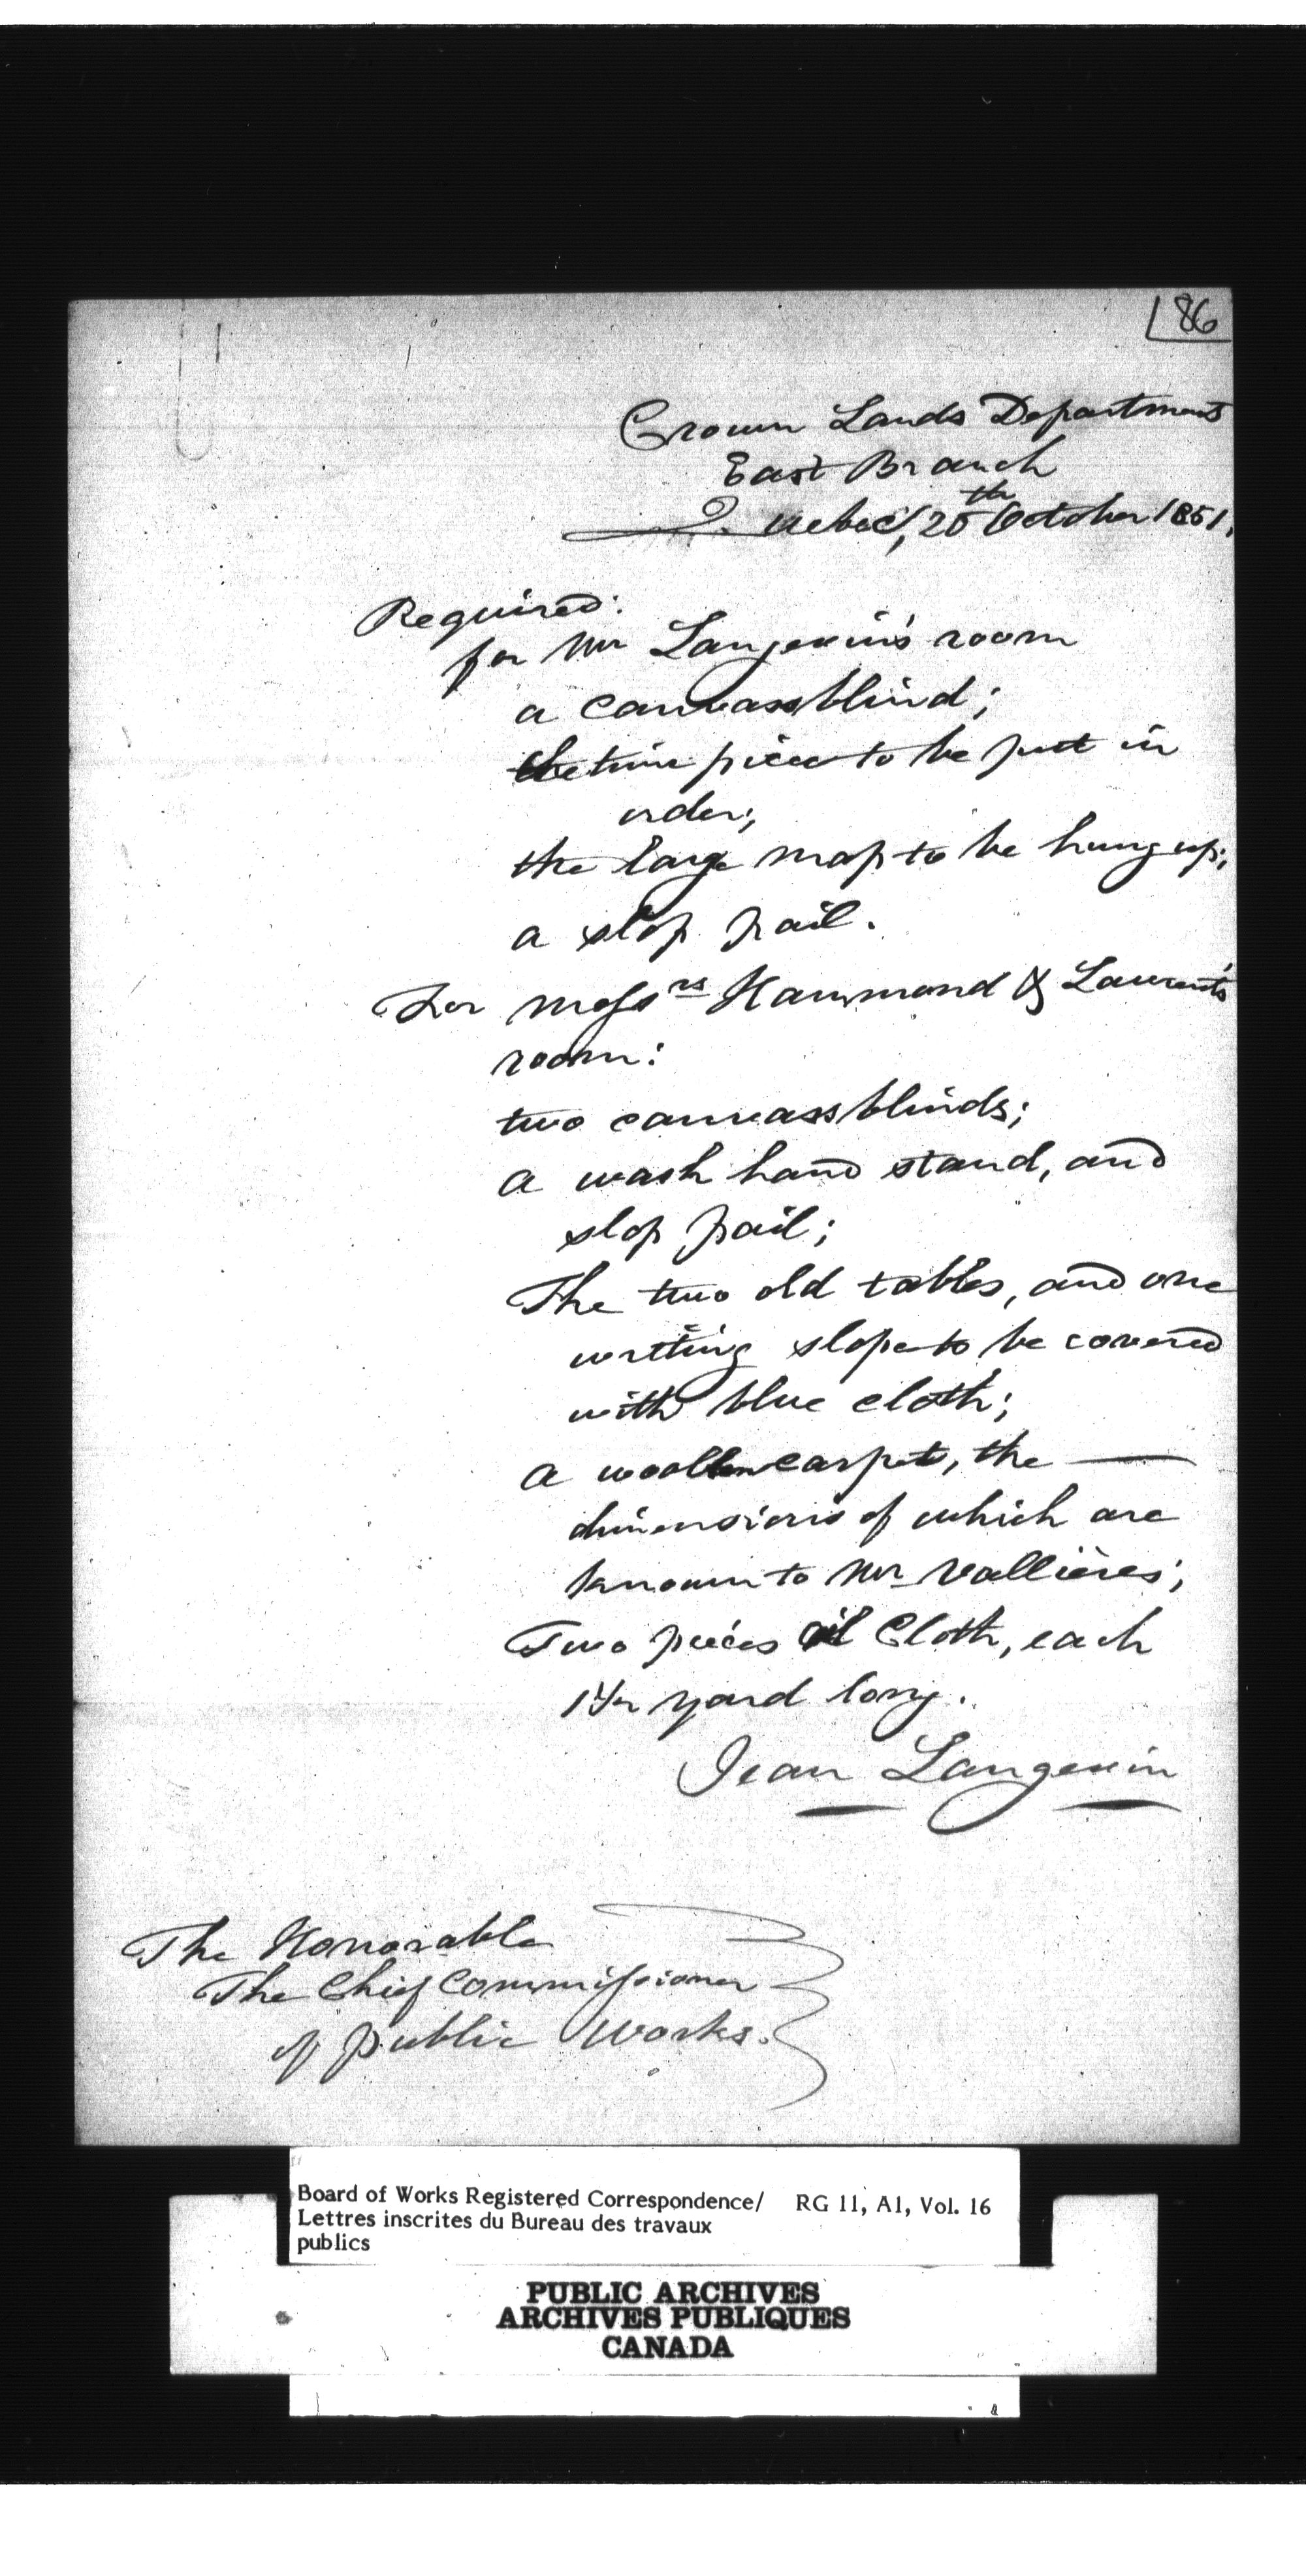 86
Crown Lands Department
East Branch
Quebec, 20th October 1851.
Required:
for Mr Langevin's room
a canvass blind;
the time piece to be put in
order;
the large map to be hung up;
a slop pail.
For Messrs Hammond & Laurent's
room:
two canvass blinds;
a wash hand stand, and
slop pail;
The two old tables, and one
writting slope to be covered
with blue cloth;
a woollen carpet, the
dimensions of which are
known to Mr Vallières;
Two pieces oil Cloth, each
1 1/2 yard long.
Jean Langevin
The Honorable
The Chief Commissioner
of Public Works.
Board of Works Registered Correspondence/ RG 11, A1, Vol. 16
Lettres inscrites du Bureau des travaux
publics
PUBLIC ARCHIVES
ARCHIVES PUBLIQUES
CANADA